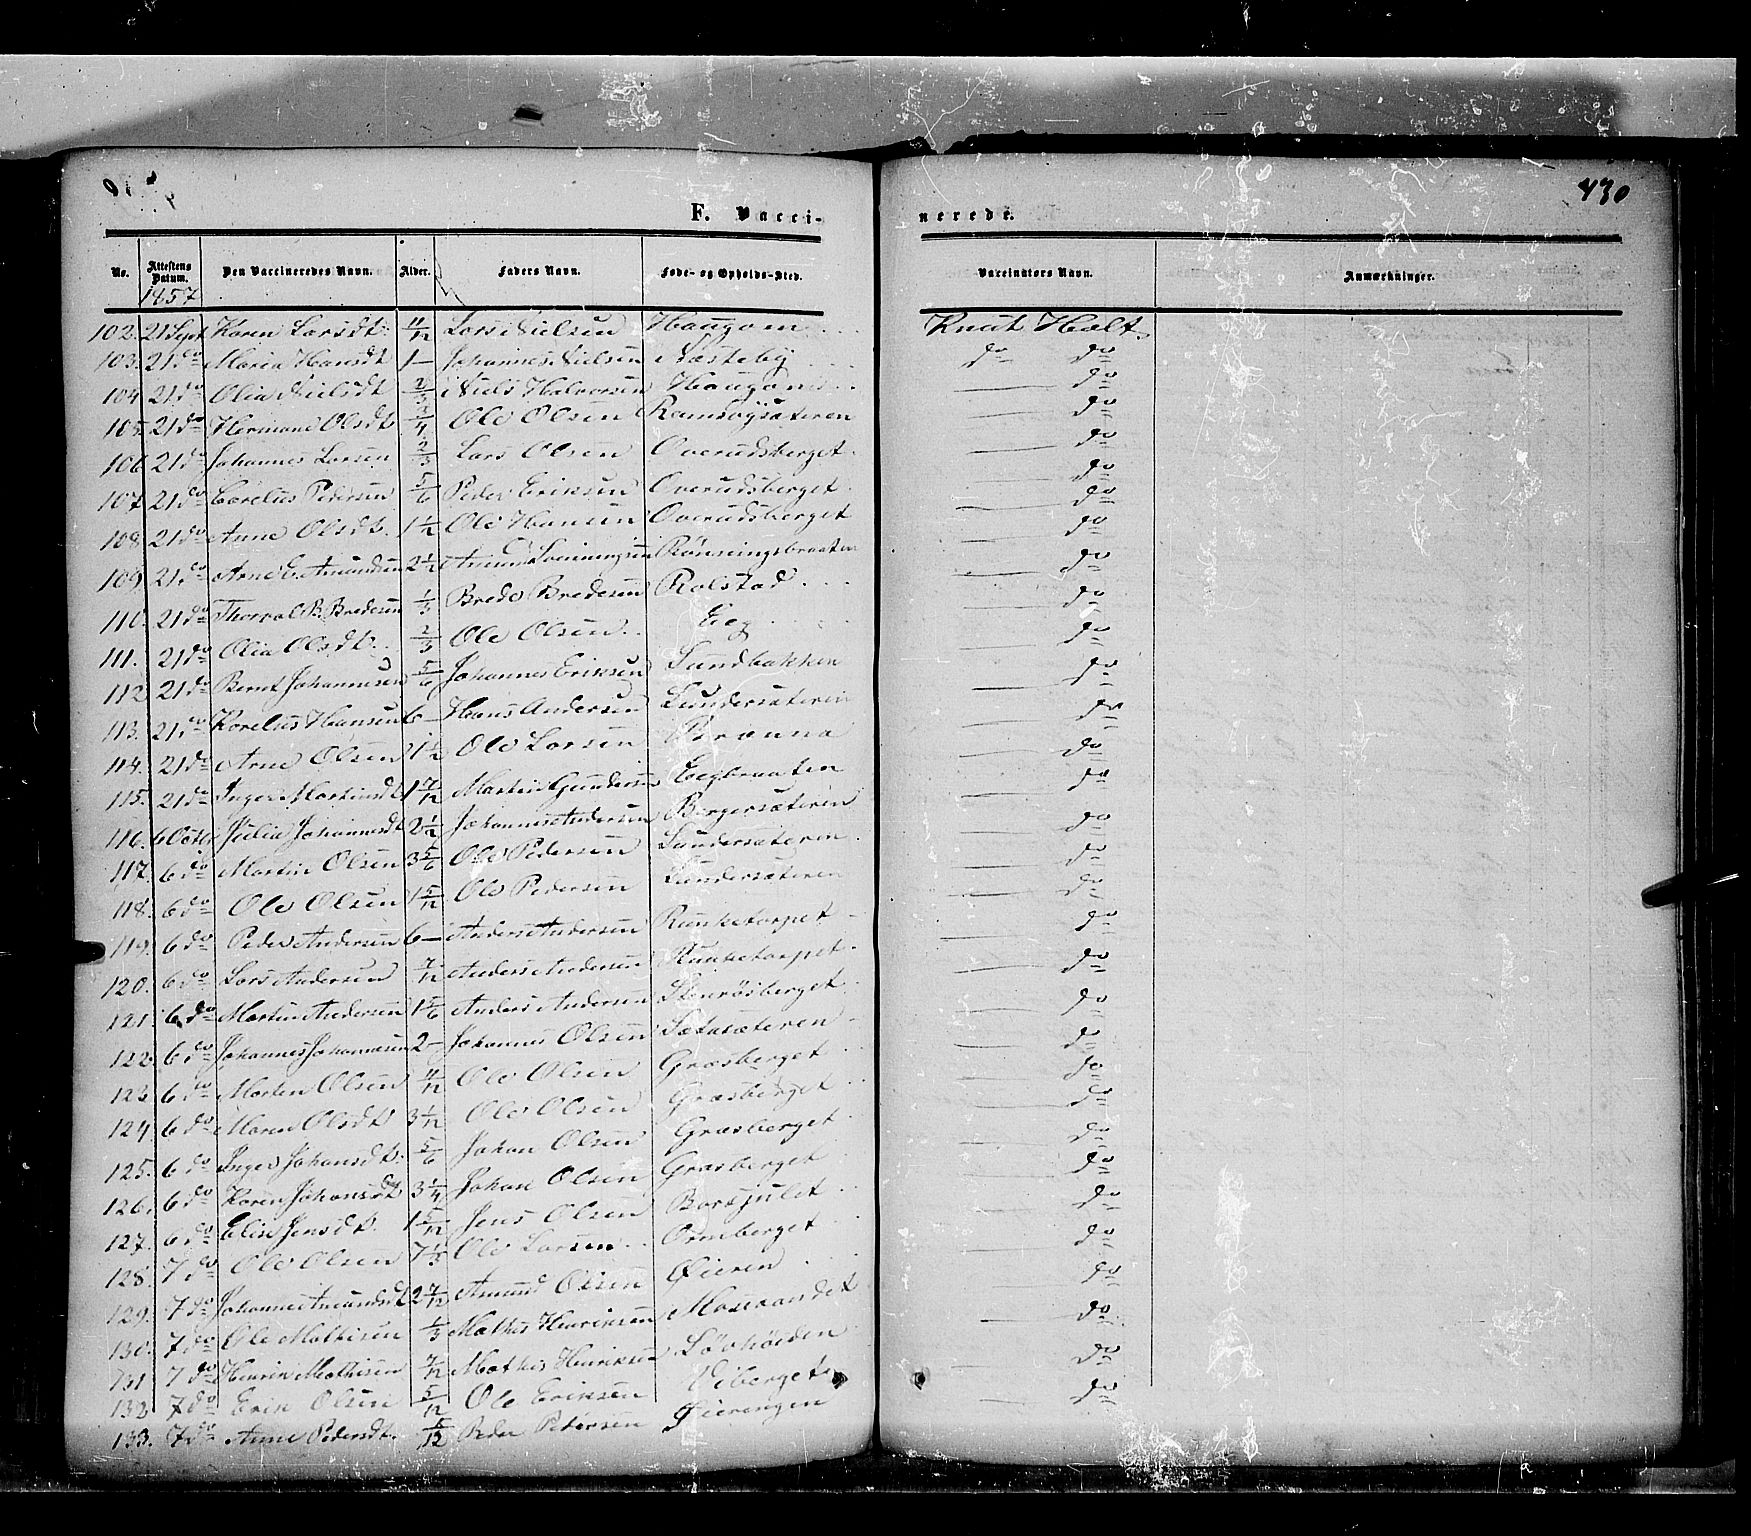 430
F. Vacci-nerede.
No. Attestens Datum. Den Vaccineredes Navn. Alder. Faders Navn. Føde- og Opholds-Sted. Vaccinators Navn. Anmærkninger.
1857
102. 21 Sept Karen Larsdt. 11/12 Lars Nielsen Haugom Knut Holt
103. 21 do Maria Hansdt 1 — Johannes Nielsen Næsteby do do
104 21 do Olia Nielsdt 2/3 Niels Halvorsen Haugom — do
105. 21 do Hermane Olsdt 3/4 Ole Olsen Ramsøysæteren — do
106 21 do Johannes Larsen 2/3 Lars Olsen Overudsberget — do
107. 21 do Carelius Pedersen 5/6 Peder Eriksen Overudsberget — do
108. 21 do Anne Olsdt. 1 1/2 Ole Hansen Overudsberget — do
109. 21 do Arne E. Amundsen 2 1/2 Amund Rønningsbraaten — do
110. 21 do Thorval B. Bredesen 1/3 Brede Bredesen Rolstad — do
111. 21 do Olia Olsdt. 2/3 Ole Olsen Eeg — do
112 21 do Bernt Johannesen 5/6 Johannes Eriksen Sundbakken — do
113. 21 do Karelius Hansen 6 — Hans Andersen Lundersæteren — do
114. 21 do Arne Olsen 1 1/2 Ole Larsen Brænna — do
115. 21 do Inger Martinsdt 1 7/12 Martin Gundersen Eegbraaten — do
116. 6 Octbr Julia Johannesdt 2 1/2 Johannes Andersen Bergersæteren — do
117. 6 do Martin Olsen 3 5/6 Ole Pedersen Lundersæteren — do
118. 6 do Ole Olsen 1 5/12 Ole Pedersen Lundersæteren — do
119. 6 do Peder Andersen 6 — Anders Andersen Runketorpet — do
120. 6 do Lars Andersen 7/12 Anders Andersen Runketorpet — do
121. 6 do Martin Andersen 1 5/6 Anders Andersen Stenrøsberget — do
122. 6 do Johannes Johannesen 2 — Johannes Olsen Sætasæteren — do
123. 6 do Morten Olsen 11/12 Ole Olsen Græsberget — do
124. 6 do Maren Olsdt 3 1/2 Ole Olsen Græsberget — do
125. 6 do Inger Johansdt. 5/6 Johan Olsen Græsberget — do
126. 6 do Karen Johansdt 3 1/4 Johan Olsen Græsberget — do
127. 6 do Elise Jensdt. 1 5/12 Jens Olsen — do
128. 7 do Ole Olsen 7 1/3 Ole Larsen Ormberget — do
129. 7 do Johanne Amundsdt 2 7/12 Amund Olsen Øieren — do
130. 7 do Ole Mathisen 1/3 Mathis Henriksen — do
131 7 do Henrik Mathisen 7/12 Mathis Henriksen Løvhøiden — do
132 7 do Erik Olsen 5/12 Ole Eriksen Viberget — do
133. 7 do Anne Pedersdt. 5/12 Peder Pedersen Øierengen — do